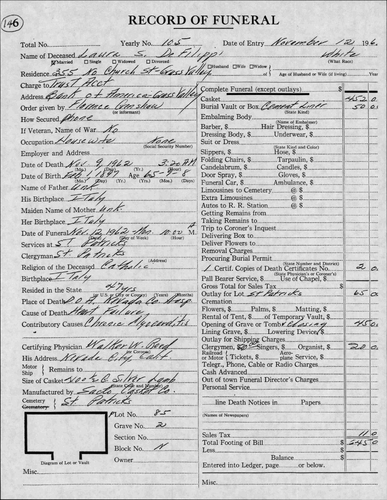 146
RECORD OF FUNERAL
Total No. Yearly No. 105 Date of Entry November 12 196
Name of Deceased Laura S. DeFilippi White
Married Single Widowed Divorced (What Race)
Residence 355 No Church St - Grass Valley Husband Wife Widow of
Charge to Trust Dept Age of Husband or Wife (if living) Year
Address Bank of America - Grass Valley
Order given by Florence
(or informant)
How Secured Phone
If Veteran, Name of War No
Occupation Housewife None
(Social Security Number)
Employer and Address
Date of Death Nov. 9, 1962 3:20 AM
Date of Birth 1897 Age 65-
Name of Father Unk
His Birthplace Italy
Maiden Name of Mother Unk
Her Birthplace Italy
Date of Funeral Nov. 12, 1962 10:00
Services at St Patricks
Clergyman St Patricks
Religion of the Deceased Catholic
Birthplace Italy
Resided in the State 47 yrs
Place of Death D.O.A. Hosp
Cause of Death Heart Failure
Contributory Causes Chronic
Certifying Physician Walter W.
(or Coroner)
His Address Nevada City Calif
Motor Ship Remains to
Size of Casket Silver
Manufactured by Casket Co.
Cemetery
Crematory St. Patricks
Lot No. 85
Grave No. 2
Section No.
Block No. N
Owner
Diagram of Lot or Vault
Misc.
Complete Funeral (except outlays) $
Casket 452 0
Burial Vault or Box Cement Liner 50 0
(State Kind)
Embalming Body
(Name of Embalmer)
Barber, $ Hair Dressing, $
Dressing Body, $ Underwear, $
Suit or Dress
(State Kind)
Slippers, $ Hose, $
Folding Chairs, $ Tarpaulin, $
Candelabrum, $ Candles, $
Door Spray, $ Gloves, $
Funeral Car, $ Ambulance, $
Limousines to Cemetery @ $
Extra Limousines @ $
Autos to R. R. Station @ $
Getting Remains from
Taking Remains to
Trip to Coroner's Inquest
Delivering Box to
Deliver Flowers to
Removal Charges
Procuring Burial Permit
(State Number and District)
Certif. Copies of Death Certificates No. 2 0
(State Physician's or Coroner's)
Pall Bearer Service, $ Use of Chapel, $
Gross Total for Sales Tax $
Outlay for Lot St Patricks 65 0
Cremation
Flowers, $ Palms, $ Matting, $
Rental of Tent, $ of Temporary Vault, $
Opening of Grave or Tomb 45 0
Lining Grave, $ Lowering Device $
Outlay for Shipping Charges
Singers, $ Organist, $ 20 0
Railroad or Motor Tickets, $ Aeroplane Service, $
Telegr., Phone, Cable or Radio Charges
Cash Advanced
Out of town Funeral Director's Charges $
Personal Services
line Death Notices in Papers.
(Names of Newspapers)
Sales Tax 11 0
Total Footing of Bill $ 645 0
Less $
Balance $
Entered into Ledger, page or below.
Misc.